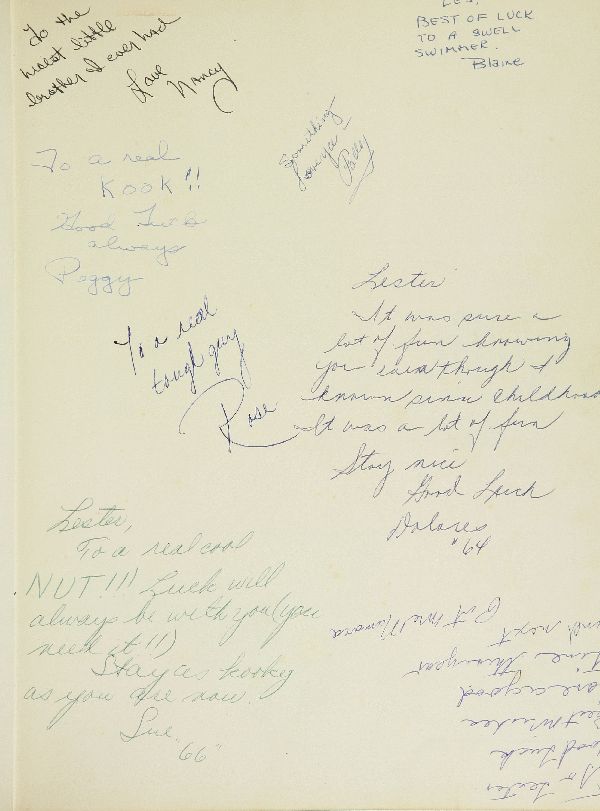 To the
nicest little
brother I ever had
Love
Nancy
Les,
BEST OF LUCK
TO A SWELL
SWIMMER.
Blaine
Something
love ya
Patty
To a real
KOOK!!
Good Luck
always
Peggy
To a real
tough guy
Rose
Lester
It was sure a
lot of fun knowing
you eventhough I
known since childhood
It was a lot of fun
Stay nice
Good Luck
Dolores
"64
Lester,
To a real cool
NUT!!! Luck will
always be with you (you
need it!!)
Stay as kooky
as you are now.
Sue
"66"
To Lester
Good Luck
Best Wishes
are a good
time this year
and next
Pat